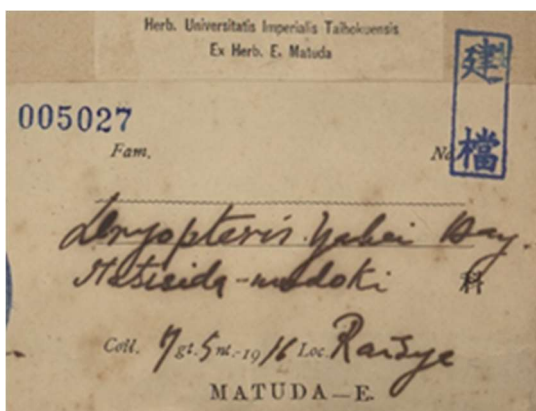 Herb. Universitatis Imperialis Taihokuensis
Ex Herb. E. Matuda
建檔
005027
Fam. No.
Dryopteris Yabei Hay.
Hosisida-modoki 科
Coll. 7 gt. 5 mt.-1916 Loc. Raisya
MATUDA—E.